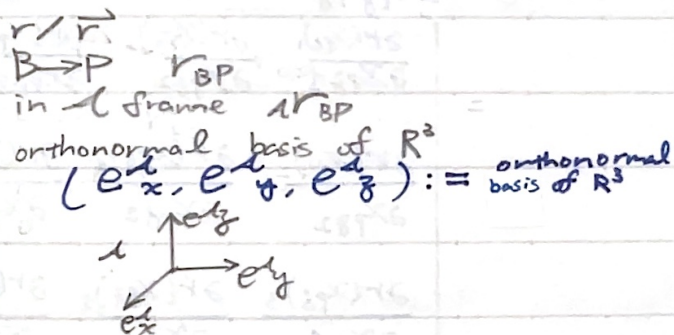 r / r⃗
B → P r_BP
in 𝒜 frame 𝒜r_BP
orthonormal basis of R³
(e^𝒜_x, e^𝒜_y, e^𝒜_z) := orthonormal basis of R³
e^𝒜_z
𝒜
e^𝒜_y
e^𝒜_x